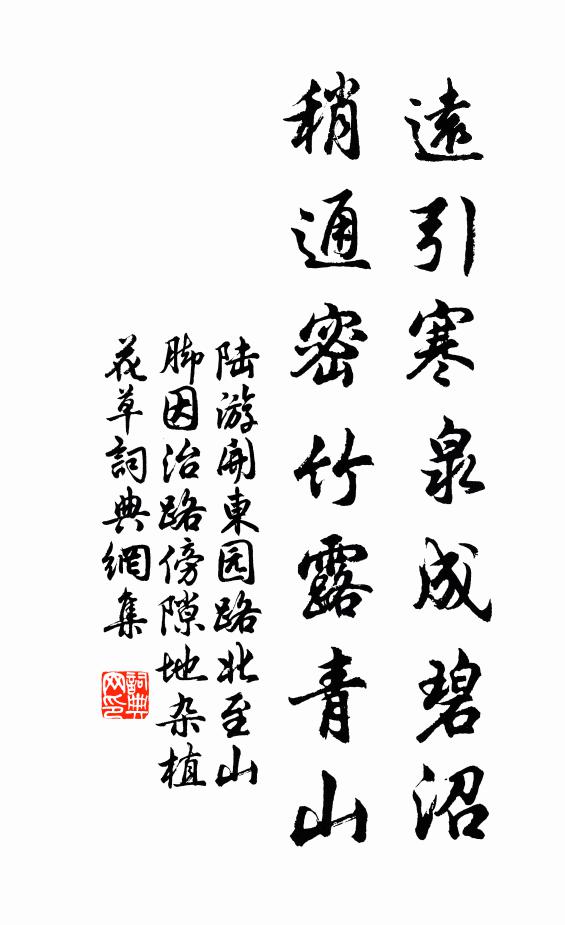 遠引寒泉成碧沼
稍通密竹露青山
陆游開東园路北至山
脚因治路傍隙地杂植
花草詞典網集
詞典
网印